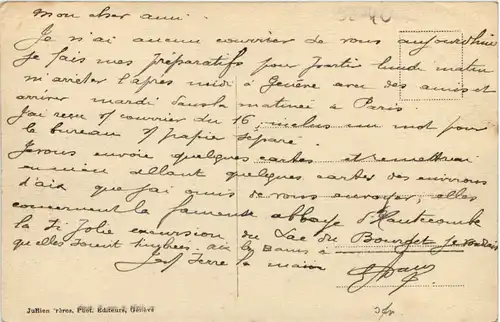 mon cher ami.
Je n'ai aucun courrier de vous aujourd'hui
Je fais mes préparatifs pour partir lundi matin
m'arreter l'après midi à Genève avec des amis et
arriver mardi dans la matinée à Paris.
J'ai reçu ce courrier du 16, inclus un mot pour
le bureau s/ papier séparé.
Je vous envoie quelques cartes et remettrai
en allant quelques cartes des environs
d'aix que j'ai omis de vous envoyer, elles
concernent la fameuse abbaye d'Hautecombe
la si jolie excursion du Lac du Bourget Je voulais
qu'elles soient timbrées aix les Bains à
Je serre la main
Jullien frères, Phot. Editeurs, Genève